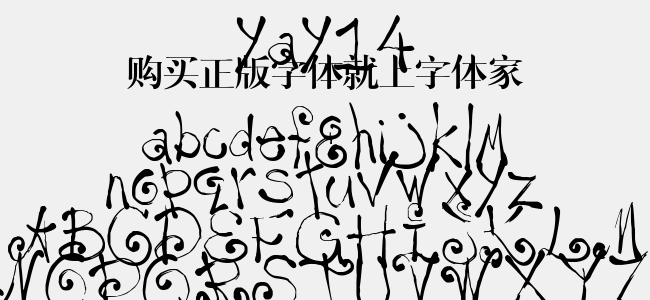 yay14
购买正版字体就上字体家
abcdefghijklm
nopqrstuvwxyz
ABCDEFGHIJKLM
NOPQRSTUVWXYZ